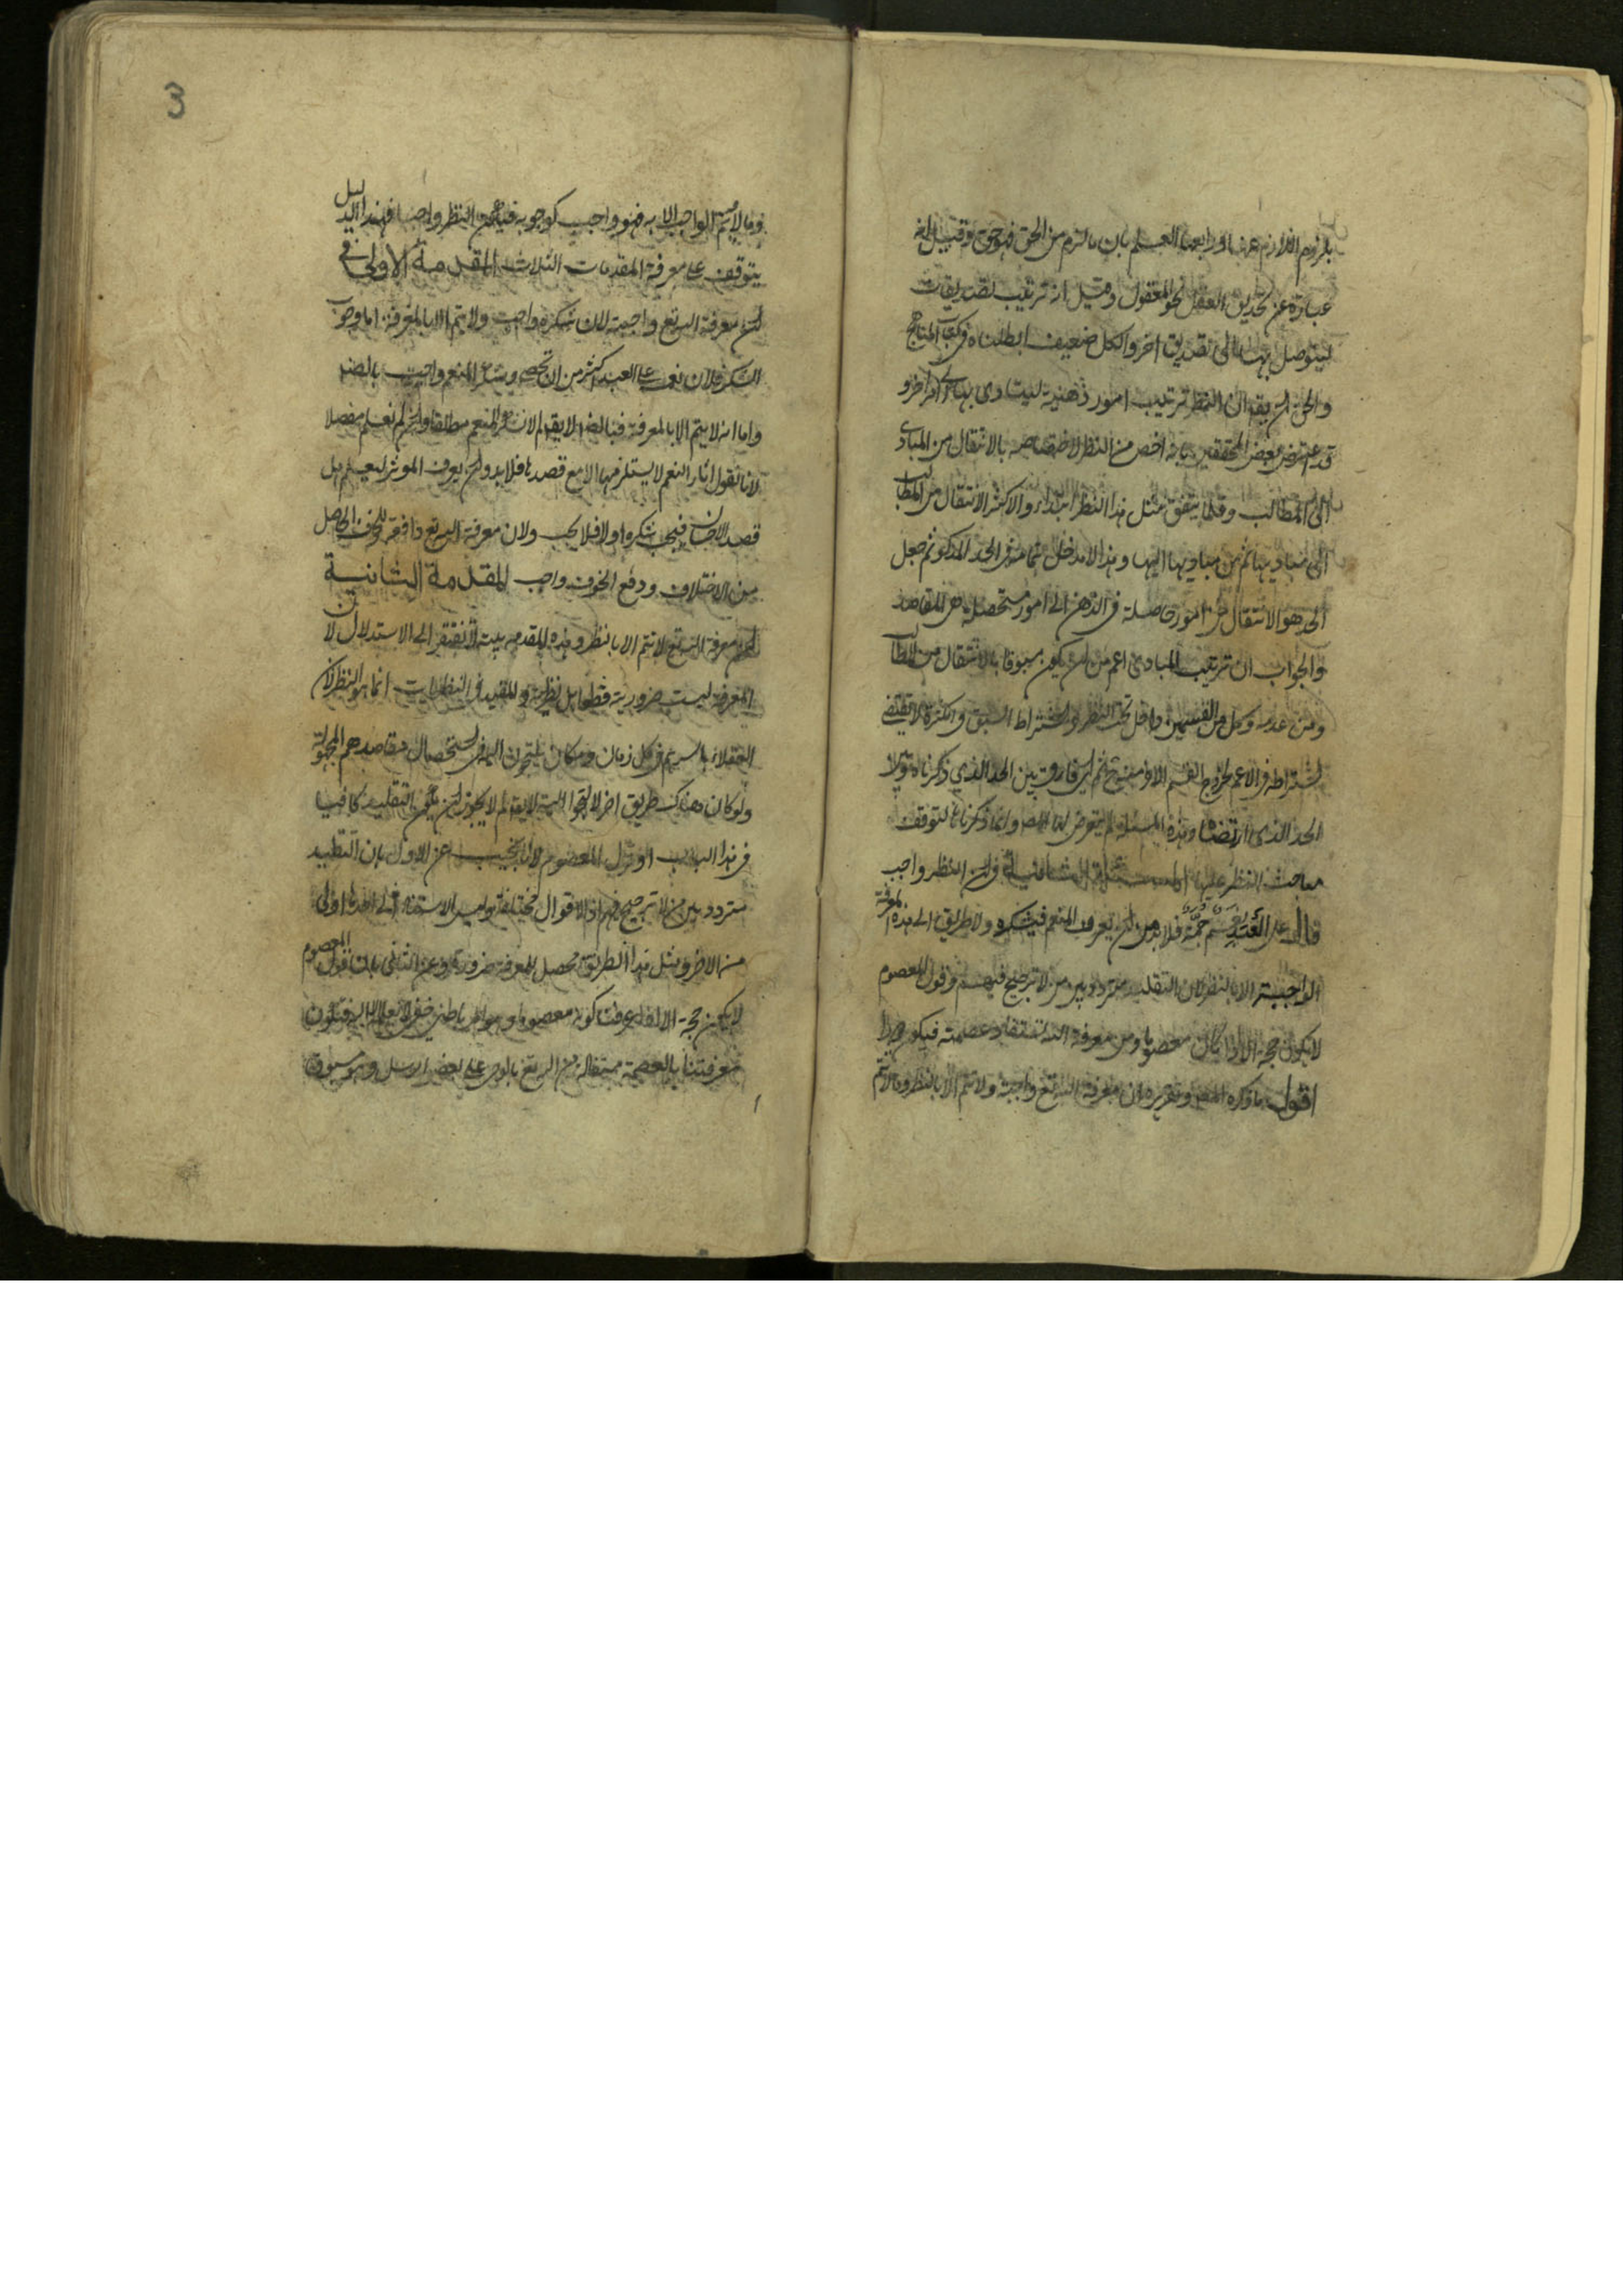 بلزوم اللازم عنها ورابعها العلم بان ما لزم من الحق فهو حق وقيل انه
عبارة عن تحديق العقل نحو المعقول وقيل انه ترتيب تصديقات
ليتوصل بها الى تصديق اخر والكل ضعيف ابطلناه في كتاب المناهج
والحق ان يقال ان النظر ترتيب امور ذهنية ليتادى بها الى امر اخر و
قد اعترض بعض المحققين بانه اخص من النظر لاختصاصه بالانتقال من المبادى
الى المطالب وقلما يتفق مثل هذا النظر ابتداء والاكثر الانتقال من المطالب
الى مباديها ثم من مباديها اليها وهذا لا مدخل له في الحد المذكور ثم جعل
الحد هو الانتقال من امور حاصلة في الذهن الى امور مستحصلة هى المقاصد
والجواب ان ترتيب المبادى اعم من ان يكون مسبوقا بالانتقال من المطالب
ومن عدمه وكل من القسمين داخل تحت النظر واشتراط السبق في اكثره لا يقتضى
اشتراطه في الاعم لخروج القسم الاول منه ثم اى فارق بين الحد الذي ذكرناه وبين
الحد الذى ارتضاه وهذه المسئلة لم يتعرض لها المص وانما ذكرناها لتوقف
مباحث النظر عليها المسئلة الثانية في ان النظر واجب
قال على العبد نعم جمة فلا بد من ان يعرف المنعم فيشكره ولا طريق الى هذه المعرفة
الواجبة الا بالنظر لان التقليد متردد بين من لا ترجيح فيهم وقول المعصوم
لا يكون حجة الا اذا كان معصوما ومن معرفة الله تستفاد عصمته فيكون دورا
اقول ما ذكره المص وتقريره ان معرفة الله تع واجبة ولا تتم الا بالنظر وما لا يتم
وما لا يتم الواجب الا به فهو واجب كوجوبه فيكون النظر واجبا فهذا الدليل
يتوقف على معرفة المقدمات الثلاث المقدمة الاولى في
ان معرفة الله تع واجبة لان شكره واجب ولا يتم الا بالمعرفة اما وجوب
الشكر فلان نعمه على العبد اكثر من ان تحصى وشكر المنعم واجب بالضر
واما انه لا يتم الا بالمعرفة فبالضر لا يقال لم لا نشكر المنعم مطلقا وان لم نعلم مفصلا
لانا نقول اثار النعم لا يستلزمها الا مع قصدها فلا بد وان يعرف المؤثر ليعلم هل
قصد الاحسان فيجب شكره او لا فلا يجب ولان معرفة الله تع دافعة للخوف الحاصل
من الاختلاف ودفع الخوف واجب المقدمة الثانية
ان معرفة الله تع لا تتم الا بالنظر وهذه المقدمة بينة لا تفتقر الى الاستدلال لان
المعرفة ليست ضرورية قطعا بل نظرية والمفيد في النظريات انما هو النظر لان
العقلاء باسرهم في كل زمان ومكان يلتجون اليه في استحصال مقاصدهم المجهولة
ولو كان هناك طريق اخر لالتجوا اليه لا يقال لم لا يجوز ان يكون التقليد كافيا
في هذا الباب او قول المعصوم لانا نجيب عن الاول بان التقليد
متردد بين من لا ترجيح فيهم اذ الاقوال مختلفة وليس الاستناد الى احدها اولى
من الاخر ومثل هذا الطريق لا يحصل المعرفة ضرورة وعن الثانى بان قول المعصوم
لا يكون حجة الا اذا عرفت كونه معصوما وهو امر باطنى خفى لا يعلمه الا الله فتكون
معرفتنا بالعصمة مستفادة من الله تع بالوحى على بعض الرسل وهو مسبوق
3